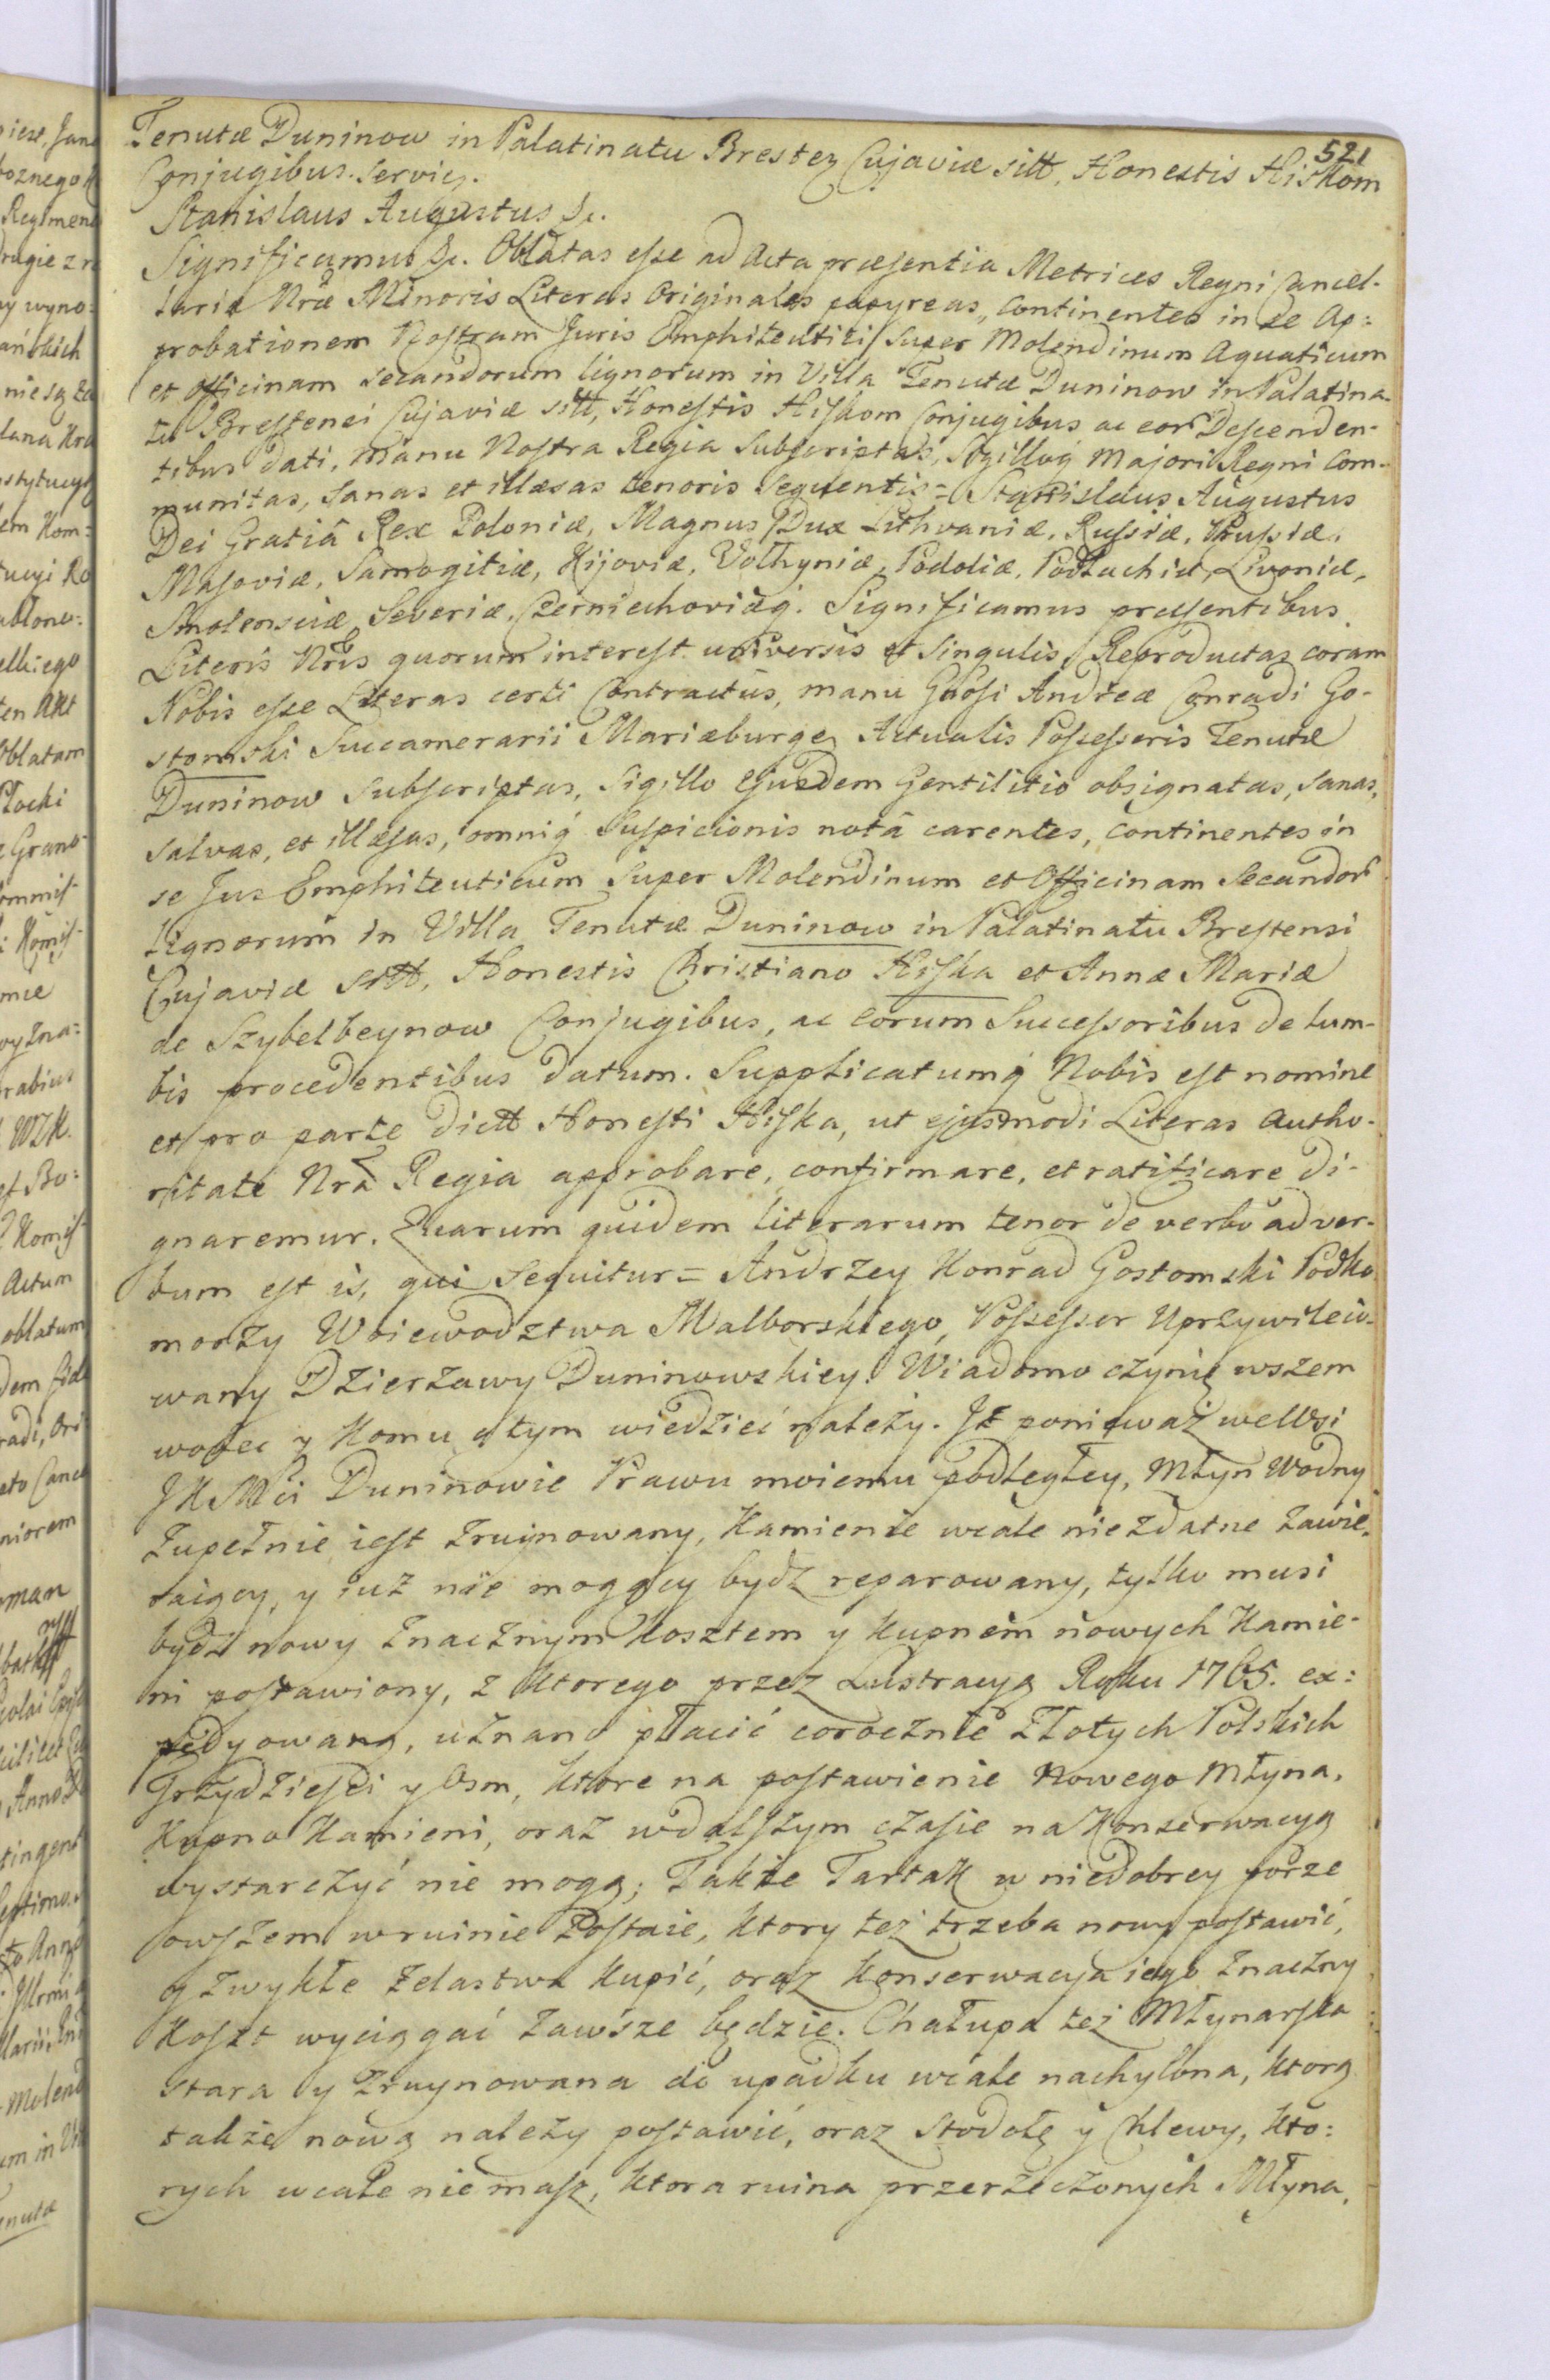 521
Tenutæ Duninow in Palatinatu Brestez Cujaviæ sitt. Honestis Hiskom
Conjugibus. serviez.
Stanislaus Augustus &c.
Significamus &c. Oblatas esse ad Acta præsentia Metrices Regni Cancel-
lariæ Nræ Minoris Literas Originales papyreas, continentes in se Ap:
probationem Nostram Juris Emphiteutici super Molendinum Aquaticum
et Officinam secandorum lignorum in Villa Tenutæ Duninow in Palatina-
tu Brestensi Cujaviæ sitt, Honestis Hiskom Conjugibus ac eor Descenden-
tibus dati, Manu Nostra Regia Subscriptas, Sigilloq Majori Regni Com-
munitas, sanas et illæsas tenoris sequentis = Stanislaus Augustus
Dei Gratiâ Rex Poloniæ, Magnus Dux Lithvaniæ, Russiæ, Prussiæ,
Masoviæ, Samogitiæ, Kijoviæ, Volhyniæ, Podoliæ, Podlachiæ, Livoniæ,
Smolensciæ, Severiæ, Czerniechoviæq. Significamus præsentibus
Literis Nris quorum interest universis et singulis, Reproductas coram
Nobis esse Literas certi Contractûs, manu Gnosi Andreæ Conradi Go-
stomski Succamerarii Mariæburgez Actualis Possessoris Tenutæ
Duninow subscriptas, Sigillo Ejusdem Gentilitio obsignatas, sanas,
salvas, et illæsas, omniq Suspicionis notâ carentes, continentes in
se Jus Emphiteuticum super Molendinum et Officinam Secandor
Lignorum in Villa Tenutæ Duninow in Palatinatu Brestensi
Cujaviæ sitt, Honestis Christiano Hiska et Annæ Mariæ
de Szybelbeynow Conjugibus, ac eorum Successoribus de lum-
bis procedentibus datum. Supplicatumq Nobis est nomine
et pro parte dictt Honesti Hiska, ut ejusmodi Literas autho-
ritate Nrâ Regia approbare, confirmare, et ratificare di-
gnaremur. Quarum quidem literarum tenor de verbo ad ver-
bum est is, qui sequitur = Andrzey Konrad Gostomski Podko-
morzy Woiewodztwa Malborskiego, Possessor Uprzywileio-
wany Dzierżawy Duninowskiey. Wiadomo czynię wszem
wobec y komu o tym wiedzieć należy. Iż ponieważ we Wsi
JK Mci Duninowie Prawu moiemu podległey, Młyn Wodny
zupełnie iest zruinowany, kamienie wcale niezdatne zawie-
raiący, y iuż nie mogący bydź reparowany, tylko musi
bydź nowy znacznym kosztem y kupnem nowych Kamie-
ni postawiony, z ktorego przez Lustracyą Roku 1765. ex:
pedyowaną, uznano płacić corocznie Złotych Polskich
Trzydzieści y Osm, ktore na postawienie nowego Młyna,
Kupno Kamieni, oraz w dalszym czasie na Konserwacyą
wystarczyć nie mogą; Także Tartak w niedobrey porze
owszem w ruinie zostaie, ktory też trzeba nowy postawić,
y zwykłe żelastwa kupić, oraz konserwacya iego znaczny
koszt wyciągać zawsze będzie. Chałupa też Młynarska
stara y zruynowana do upadku wcale nachylona, ktorą
także nową należy postawić, oraz stodołę y Chlewy, kto:
rych wcale nie masz, ktora ruina przerzeczonych Młyna,